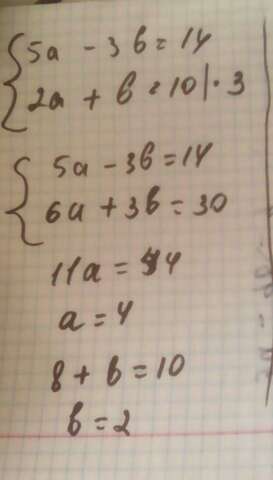 5a - 3b = 14
2a + b = 10 | · 3
5a - 3b = 14
6a + 3b = 30
11a = 44
a = 4
8 + b = 10
b = 2